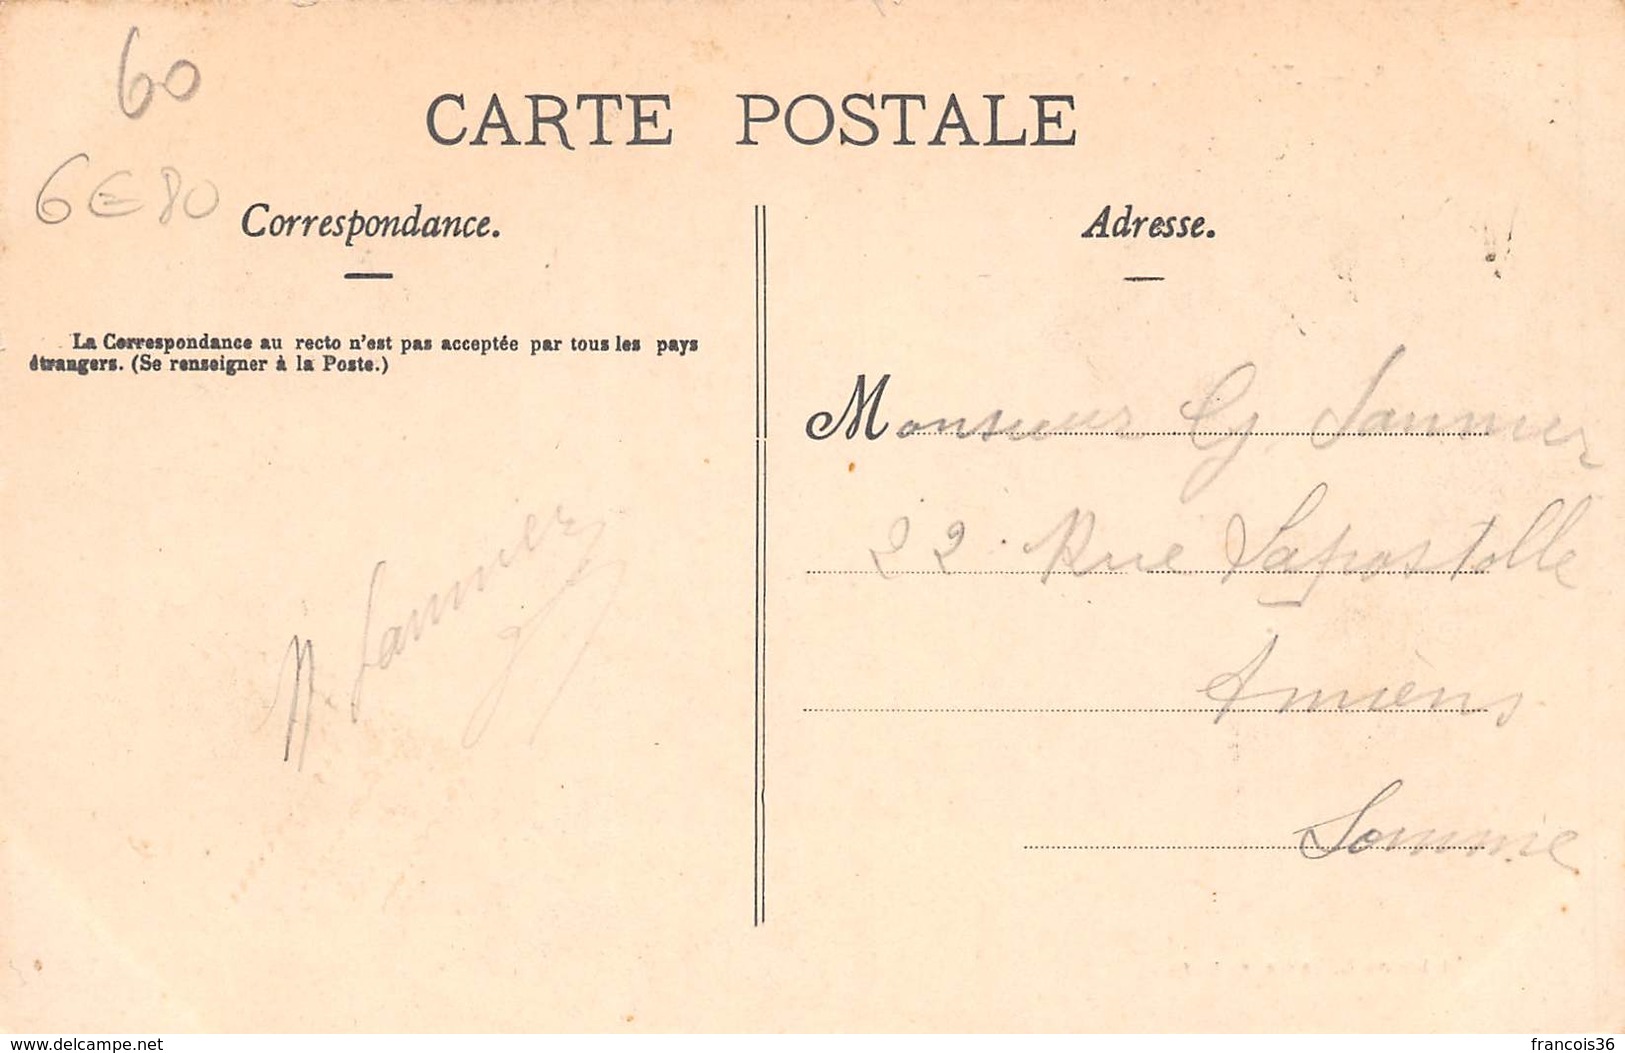 60
CARTE POSTALE
6€80
Correspondance.
Adresse.
La Correspondance au recto n'est pas acceptée par tous les pays
étrangers. (Se renseigner à la Poste.)
Monsieur G. Sannier
22 Rue Lapostolle
Amiens
Somme
Sannier
www.delcampe.net
francois36